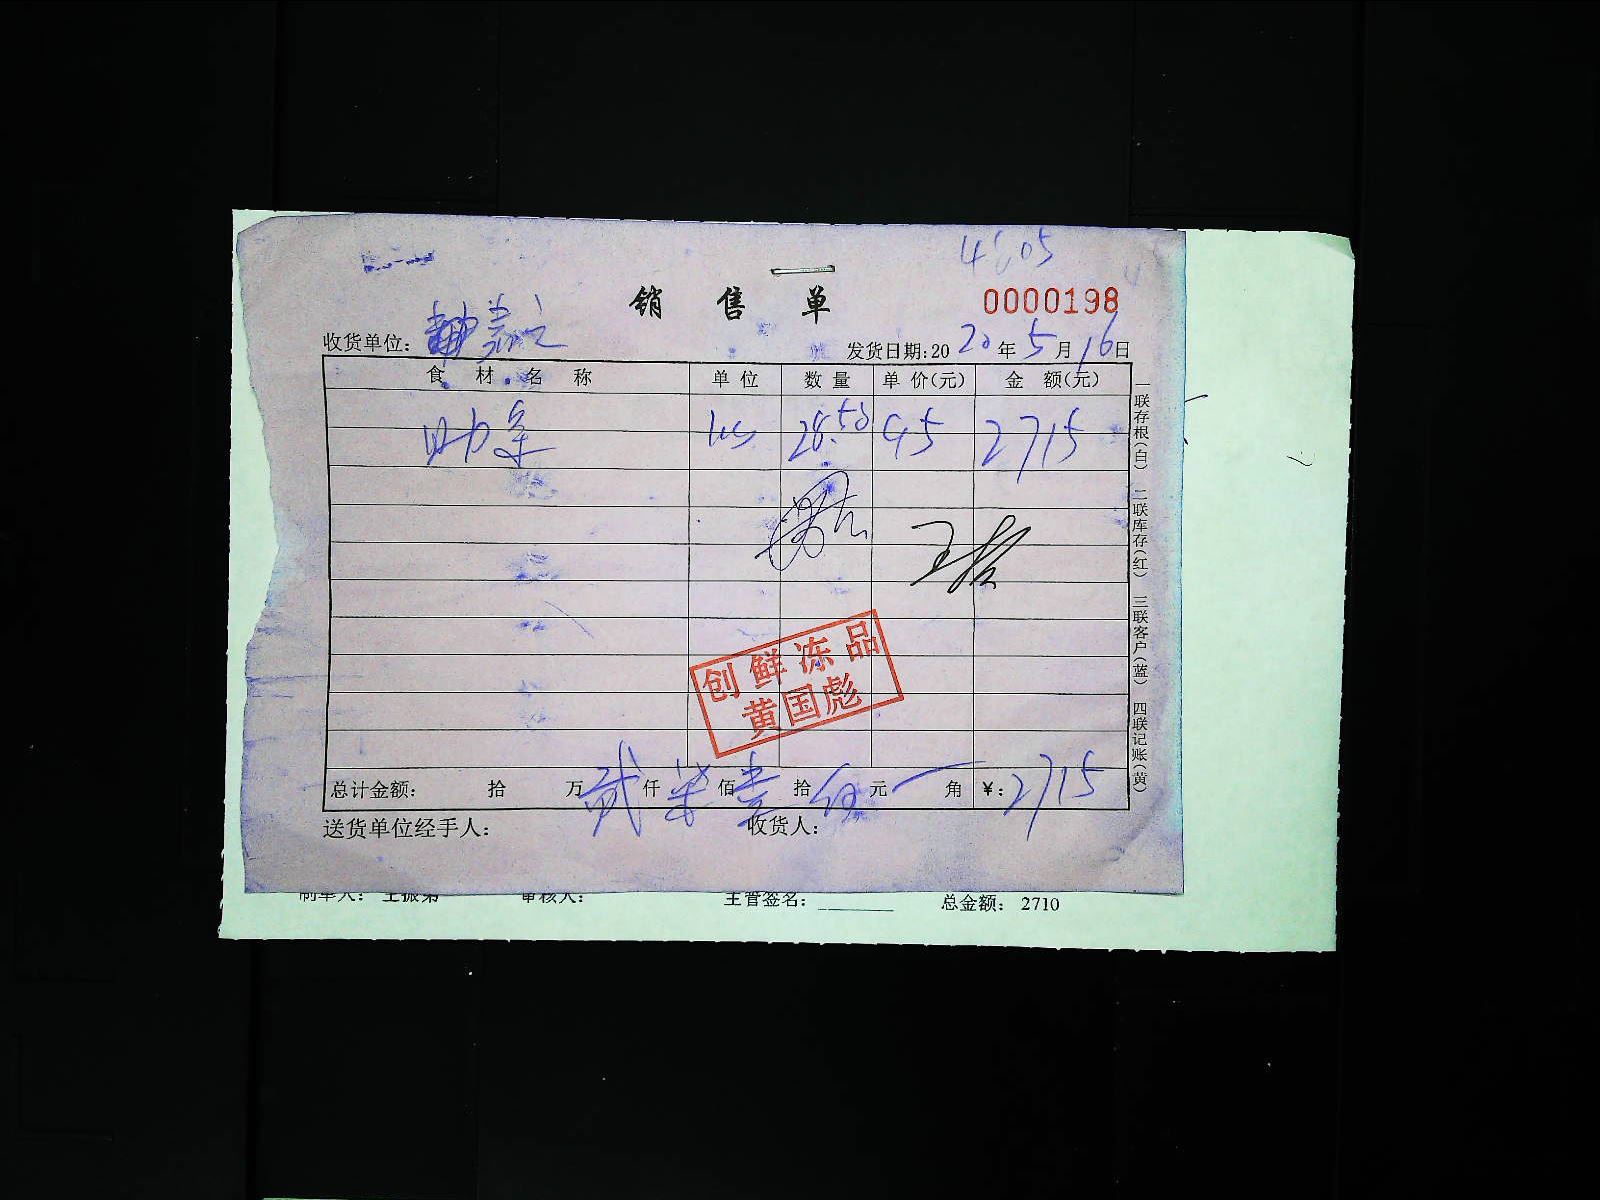 销 售 单
0000198
收货单位:
发货日期:20 20 年 5 月 16 日
食 材 名 称 单 位 数 量 单 价(元) 金 额(元)
肋条 95 2715
王
创鲜冻品
黄国彪
总计金额: 拾 万 贰 仟 柒 佰 壹 拾 伍 元 角 ¥: 2715
送货单位经手人: 收货人:
一联存根(白) 二联库存(红) 三联客户(蓝) 四联记账(黄)
制单人: 王振第 审核人: 主管签名: ________ 总金额: 2710